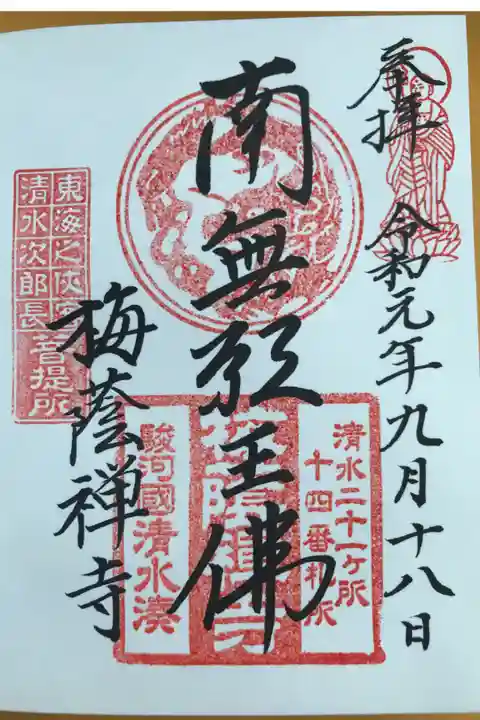 奉拝
令和元年九月十八日
南無願王佛
梅蔭禅寺
清水二十一ヶ所
十四番札所
駿河國清水湊
東海之侠客
清水次郎長菩提所